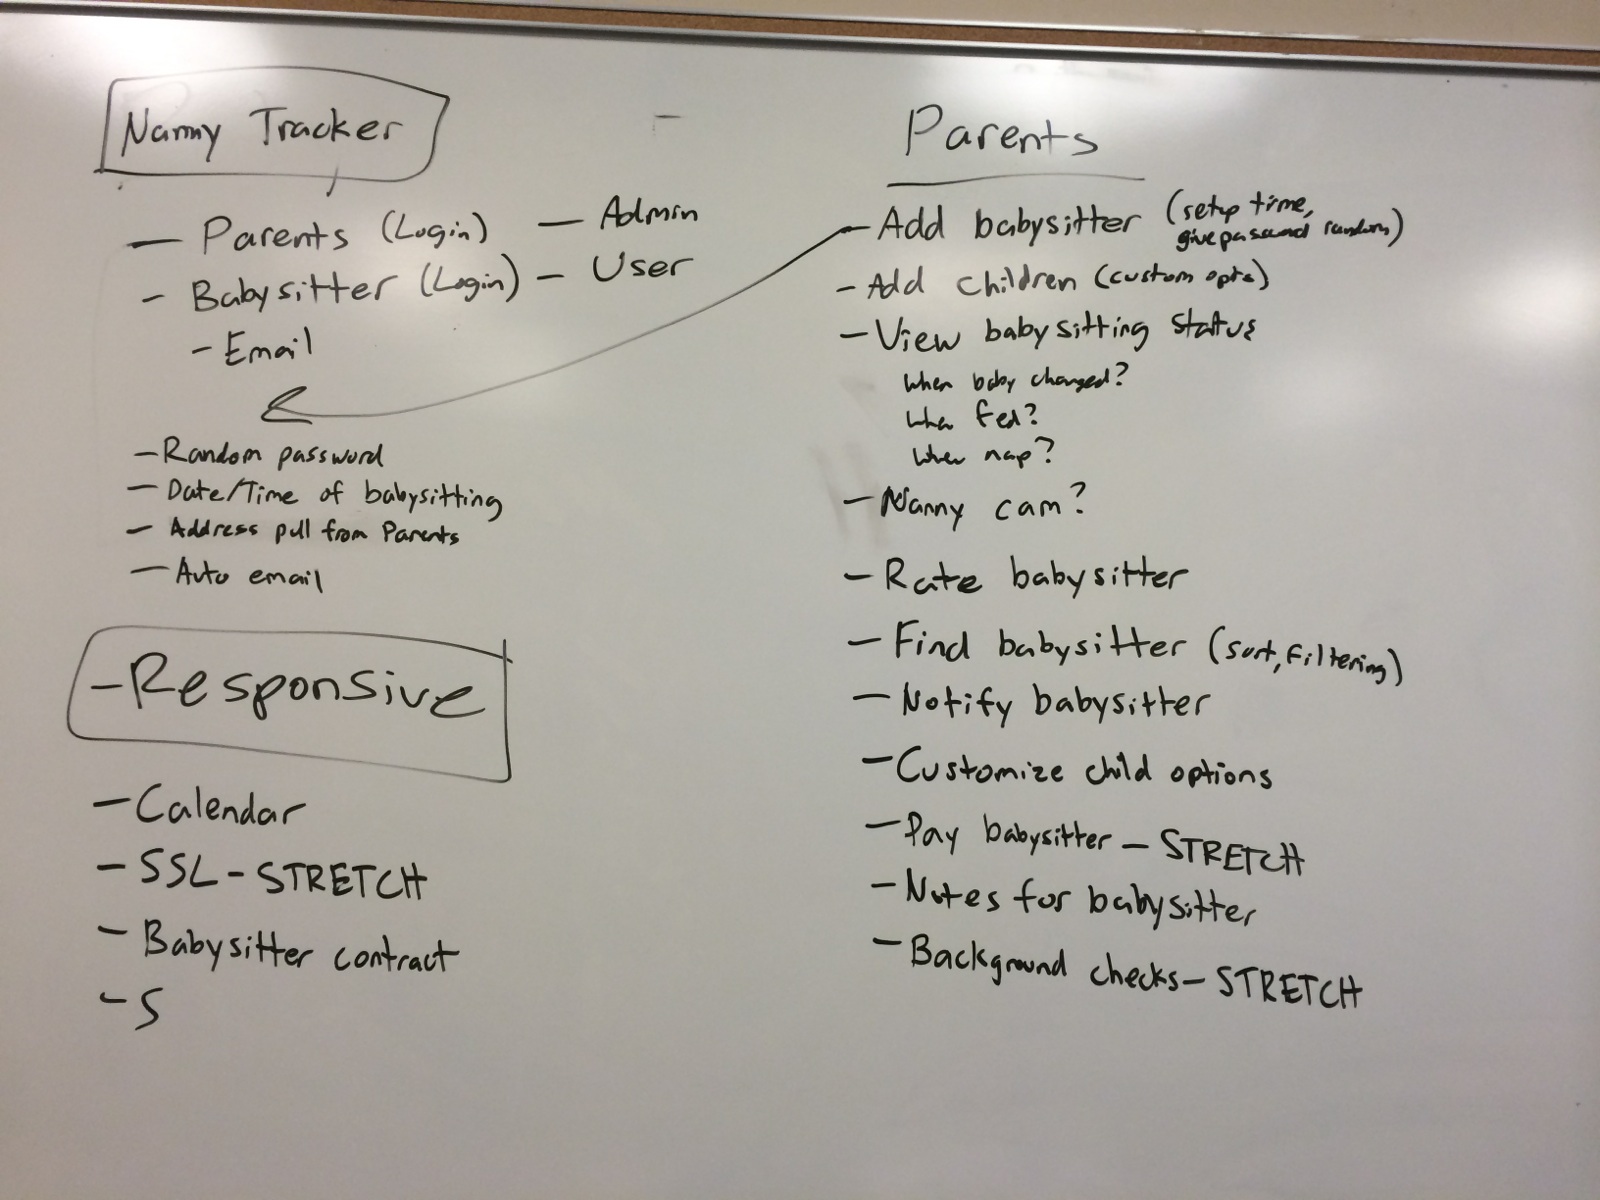 Nanny Tracker
— Parents (Login) — Admin
- Babysitter (Login) - User
- Email
- Random password
- Date/Time of babysitting
- Address pull from Parents
- Auto email
- Responsive
- Calendar
- SSL - STRETCH
- Babysitter contract
- S
Parents
- Add babysitter (setup time,
give password random)
- Add children (custom opts)
- View babysitting status
When baby changed?
When fed?
When nap?
- Nanny cam?
- Rate babysitter
- Find babysitter (sort, filtering)
- Notify babysitter
- Customize child options
- Pay babysitter - STRETCH
- Notes for babysitter
- Background checks - STRETCH